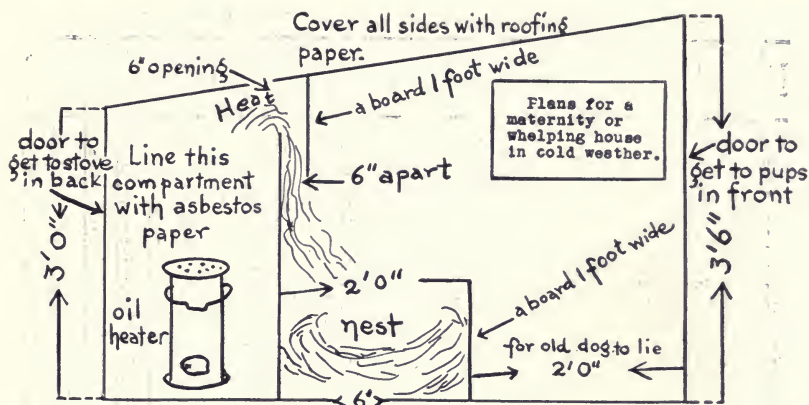 Cover all sides with roofing
paper.
6" opening
Heat
a board 1 foot wide
Plans for a
maternity or
whelping house
in cold weather.
door to
get to stove
in back
Line this
compartment
with asbestos
paper
6" apart
door to
get to pups
in front
3'0"
3'6"
oil
heater
2'0"
nest
a board 1 foot wide
for old dog to lie
2'0"
6"